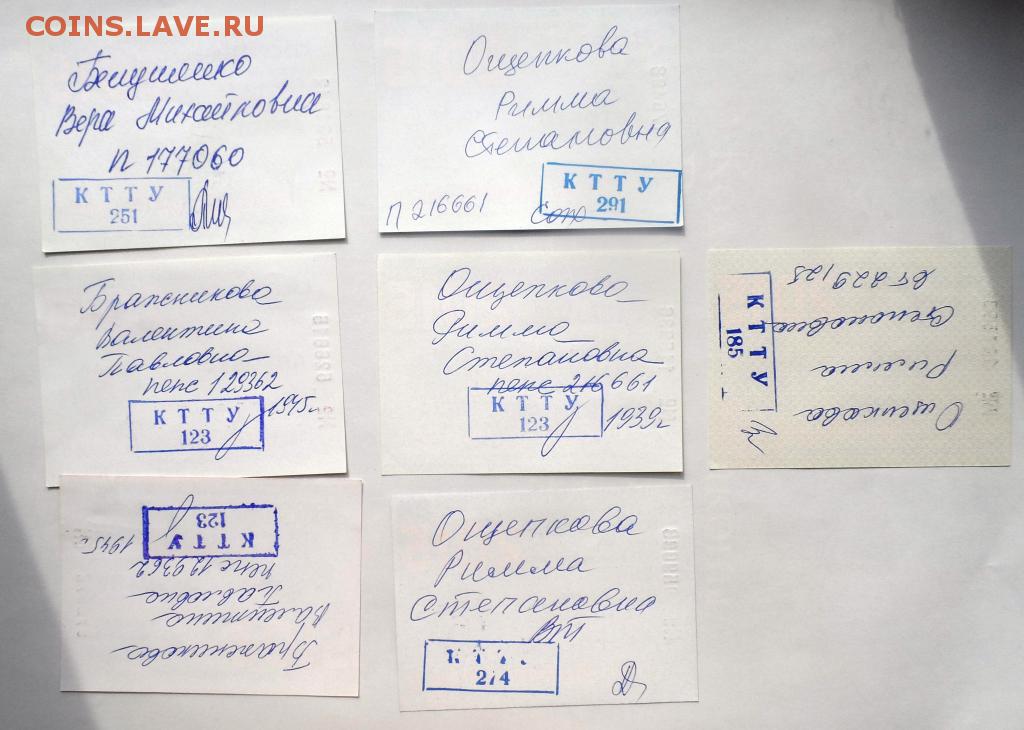 COINS.LAVE.RU
Вера Михайловна
П 177060
КТТУ
251
Ощепкова
Римма
Степановна
П 216661
КТТУ
291
Бражникова
Валентина
Павловна
пенс 129362
1945г
КТТУ
123
Ощепкова
Римма
Степановна
пенс 216661
КТТУ
123
1939г
Ощепкова
Римма
Степановна
ВТ 229125
КТТУ
185
Бражникова
Валентина
Павловна
пенс 129362
1945г
КТТУ
123
Ощепкова
Римма
Степановна
ВТ
КТТУ
274